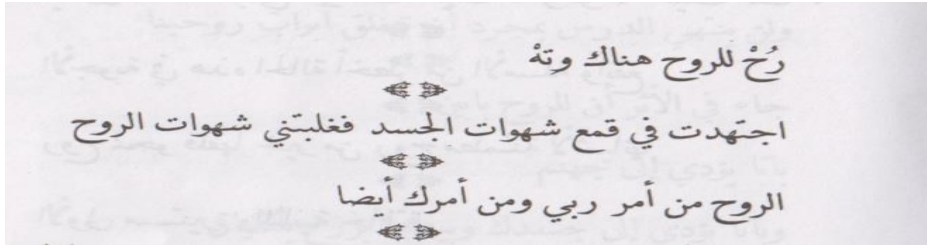 رُحْ للروح هناك وتهْ
اجتهدت في قمع شهوات الجسد فغلبتني شهوات الروح
الروح من أمر ربي ومن أمرك أيضا